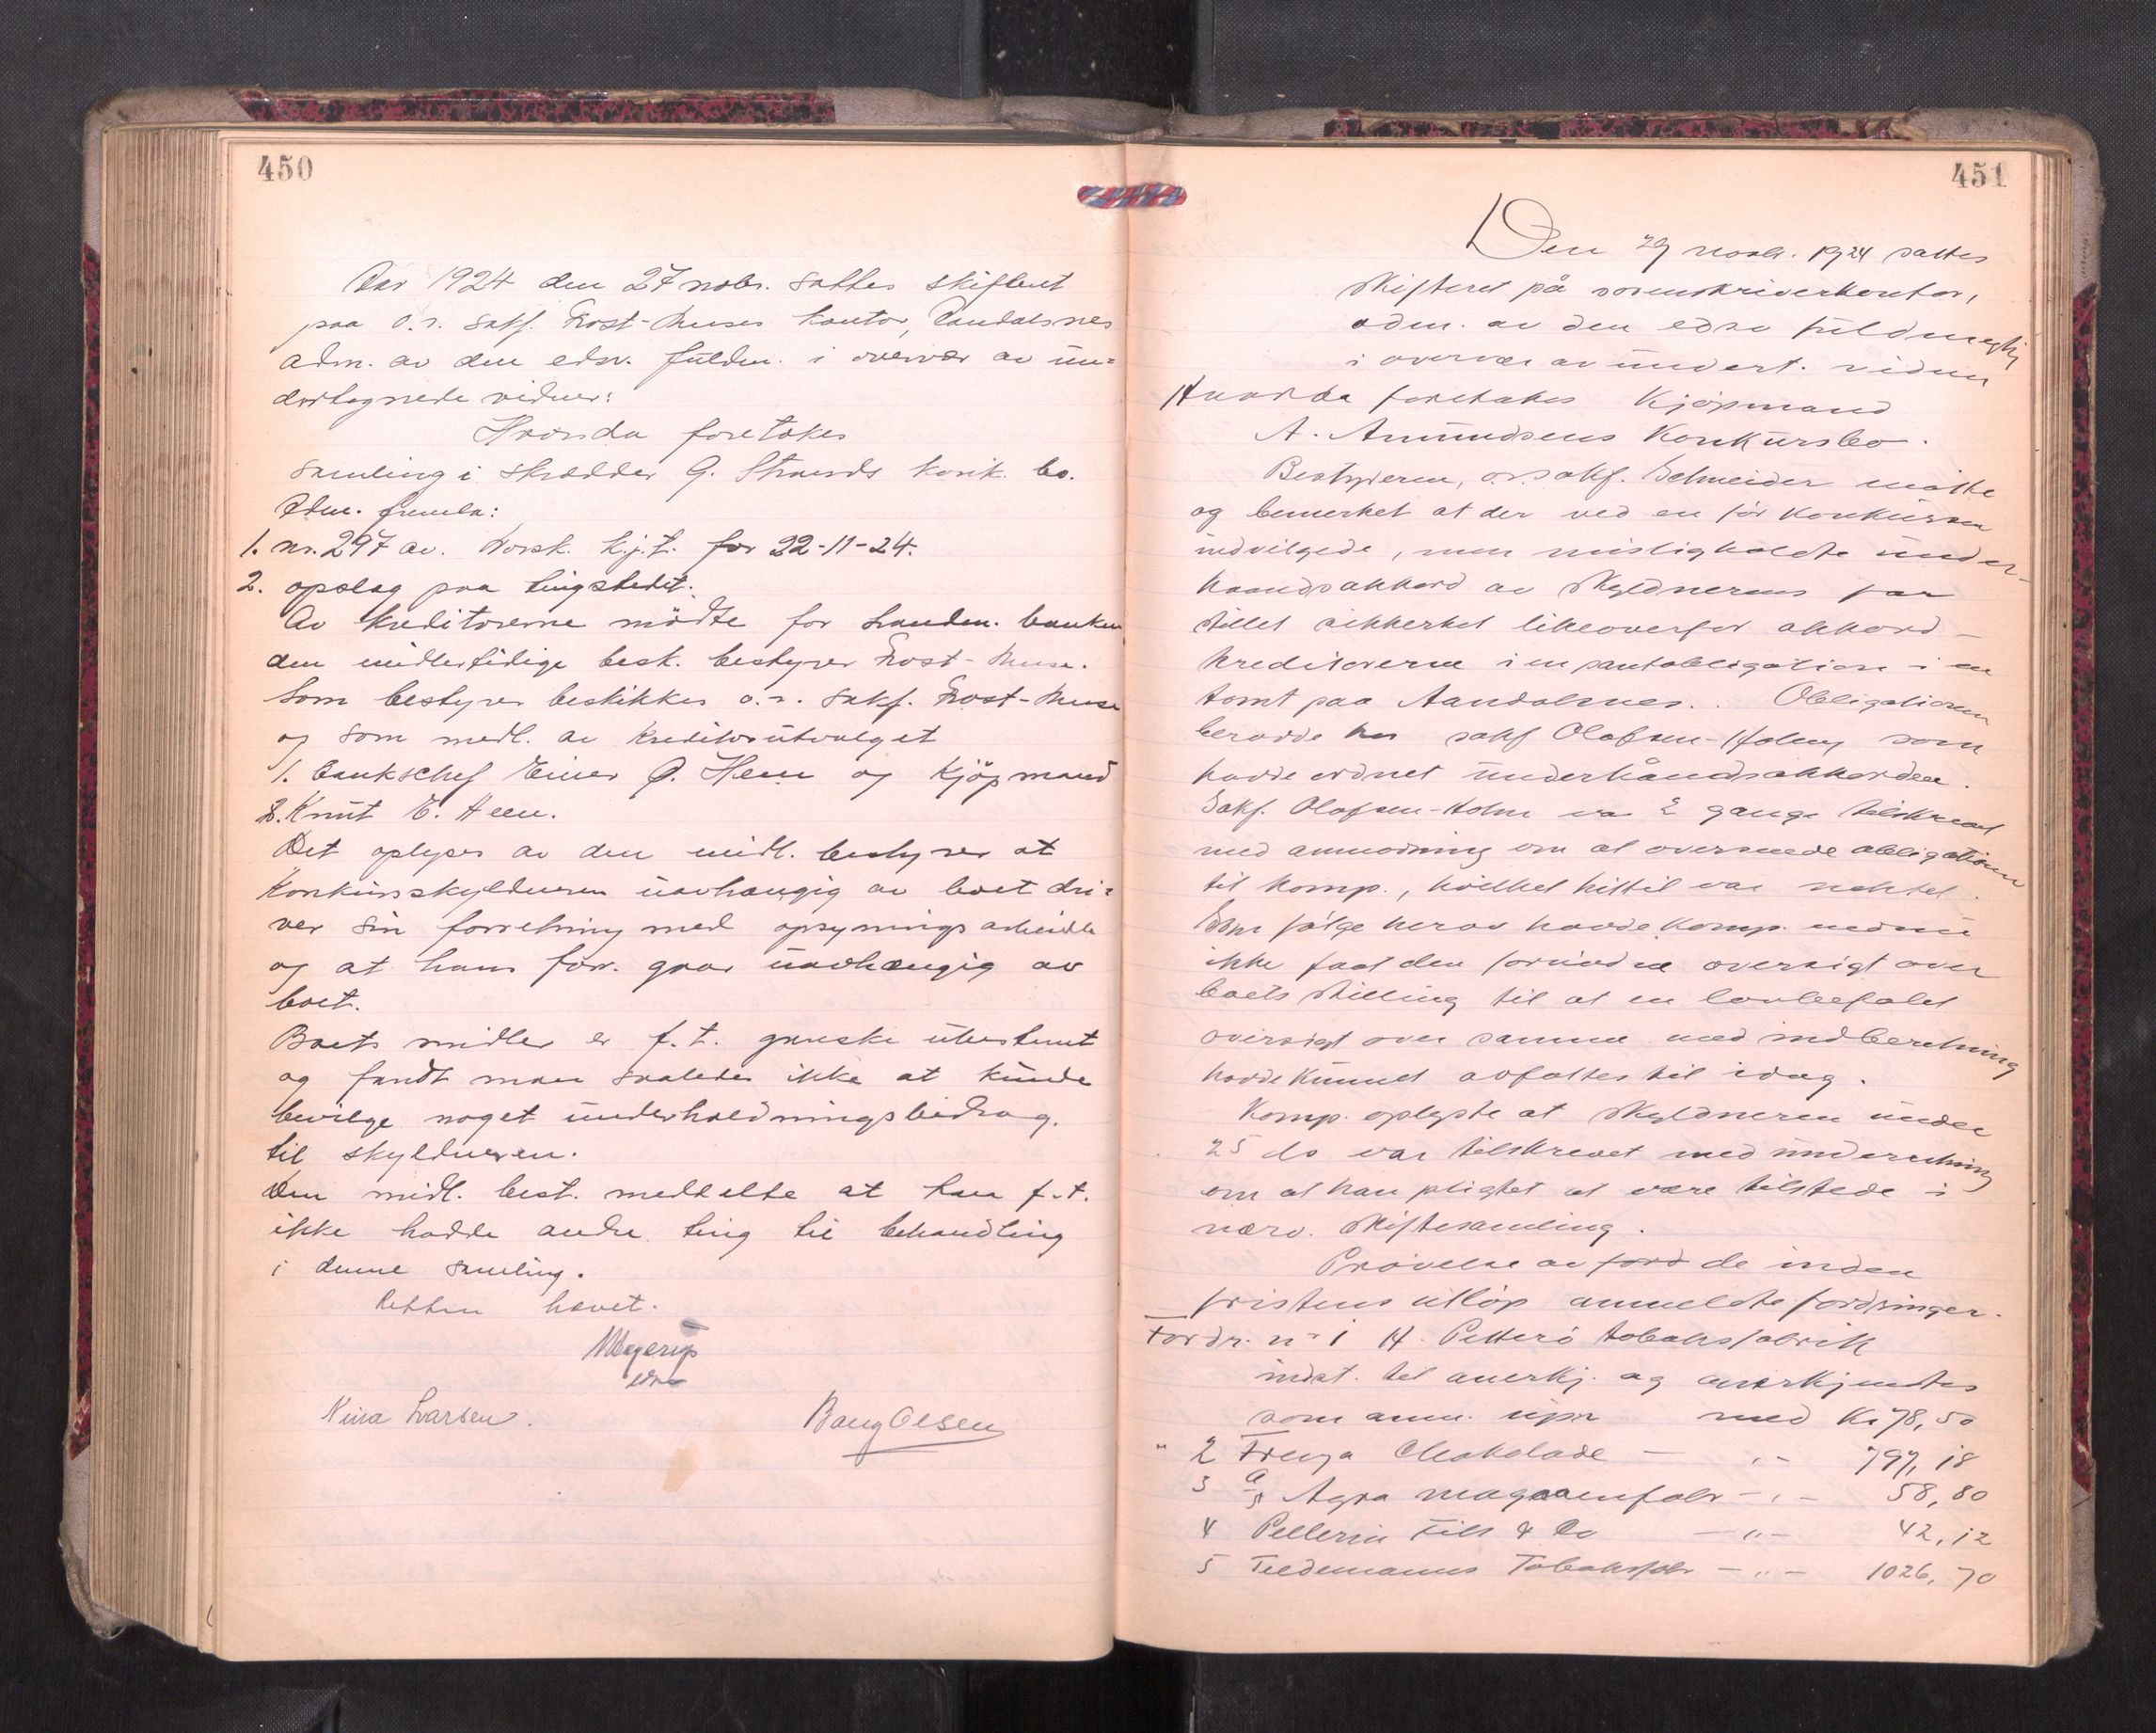 450
Aar 1924 den 27 nobr. sattes skifteret
paa o.r. sakf. Frost-Muses kontor, Aandalsnes
adm. av den edsv. fuldm. i overvær av un-
dertegnede vidner:
Hvorda foretokes
samling i skrædder G. Strands konk. bo.
Adm. fremla:
1. nr. 297 av. Norsk. k.j.t. for 22-11-24.
2. opslag paa tingstedet.
Av kreditorerne mödte for banken
den midlertidige besk. bestyrer Frost-Muse.
Som bestyrer beskikkes o.r. sakf. Frost-Muse
og som medl. av kreditorutvalget
1. bankschef Einer O. Heen og Kjöpmand
2. Knut E. Heen.
Det oplyses av den midl. bestyrer at
Konkursskyldneren uavhængig av boet dri-
ver sin forretning med opsyningsarbeide
og at hans forr. gaar uavhængig av
boet.
Boets midler er f.t. ganske ubestemt
og fandt man saaledes ikke at kunde
bevilge noget underholdningsbidrag.
til skyldneren.
Den midl. best. meddelte at han f.t.
ikke hadde andre ting til behandling
i denne samling.
Retten hævet.
edsv
Nina Larsen. Bang Olsen
451
Den 29 novb. 1924 sattes
Skifteret på sorenskriverkontor,
adm. av den edsv fuldmegtig
i overvær av undert. vidner
Hvorda foretakes Kjøpmand
A. Amundsens Konkursbo.
Bestyreren, o.r.sakf. Schneider møtte
og bemerket at der ved en før konkursen
indvilgede, men misligholdte under-
haandsakkord av Skyldneren var
stillet sikkerhet likeoverfor akkord-
kreditorerne i en pantobligation i en
tomt paa Aandalsnes. Obligationen
beroede hos sakf Olafsen-Holm som
havde ordnet underhåndsakkorden.
Sakf. Olafsen-Holm var 2 gange tilskrevet
med anmodning om at oversende obligationen
til komp., hvilket hittil var nektet.
Som følge herav havde komp. endnu
ikke faat den fornødne oversigt over
boets stilling til at en lovbefalet
oversigt over samme med indberetning
havde kunnet avfattes til idag.
Komp. oplyste at Skyldneren under
25 ds var tilskrevet med underretning
om at han pligtet at være tilstede i
nærv. Skiftesamling.
Prøvelse av ford de inden
fristens utløp anmeldte fordringer.
Fordr. nr 1 H. Petterö tobaksfabrik
indst. til anerkj. og anerkjendtes
som anm. upr med Kr 78,50
" 2 Freya Chokolade — " — 797,18
3 A/S Agra margarinfabr — " — 58,80
4 Pellerin Fils & Co — " — 42,12
5 Tiedemanns Tobaksfabr — " — 1026,70